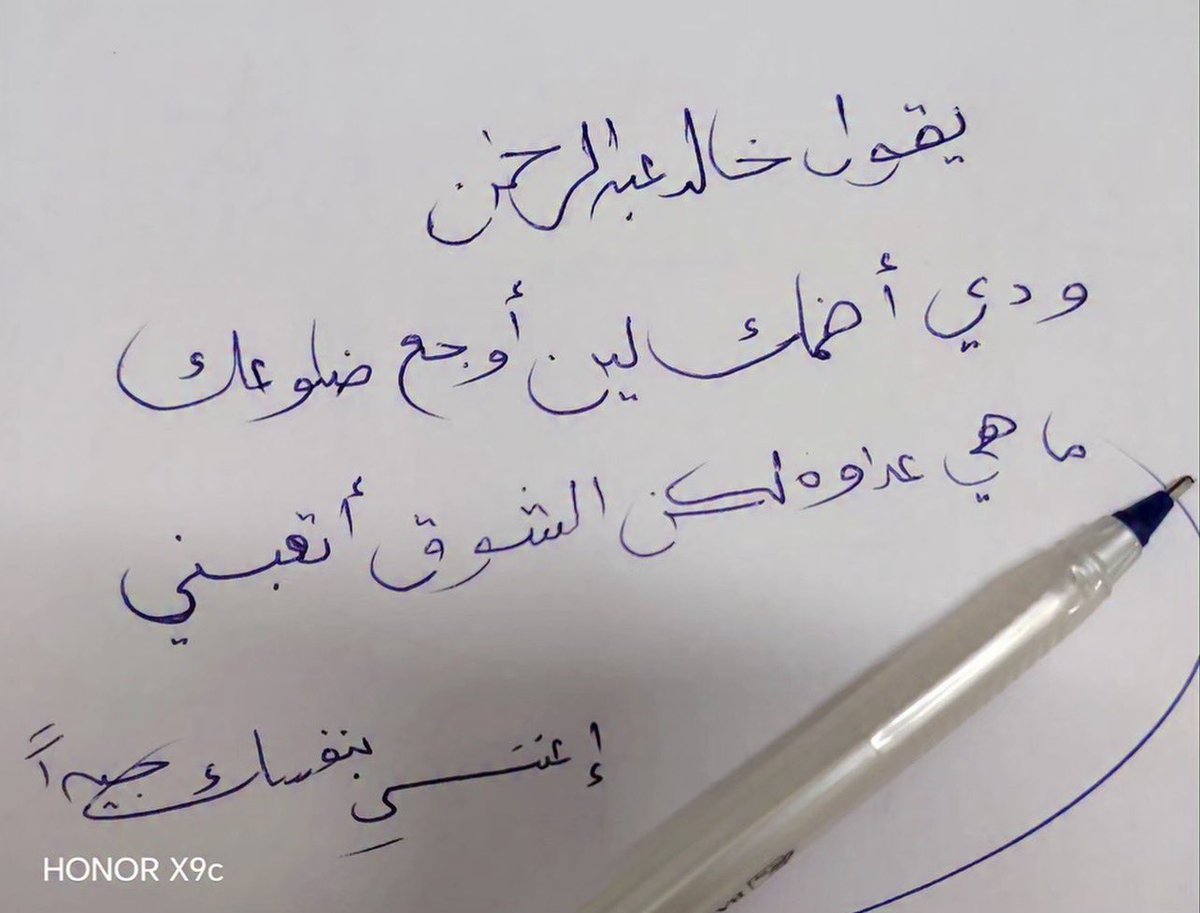 يقول خالد عبدالرحمن
ودي أضمك لين أوجع ضلوعك
ما هي عداوه لكن الشوق أتعبني
إعتني بنفسك جيداً
HONOR X9c